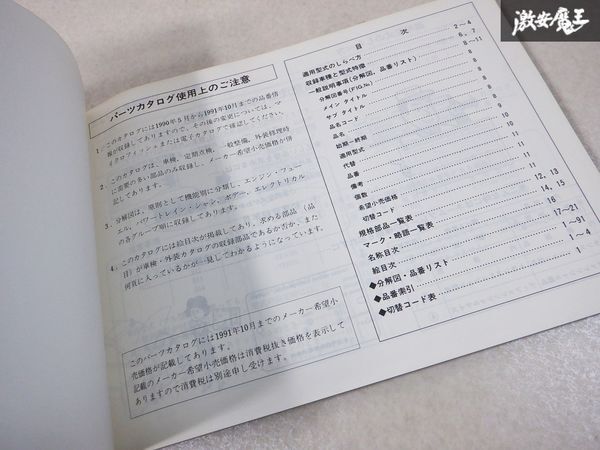 激安魔王
パーツカタログ使用上のご注意
1. このカタログには1990年5月から1991年10月までの品番情
報が収録してありますので、その後の変更については、マ
イクロフィッシュまたは電子カタログで確認してください。
2. このカタログは、車検、定期点検、一般整備、外装修理時
に需要の多い部品のみ収録し、メーカー希望小売価格が併
記してあります。
3. 分解図は、原則として機能別に分類し、エンジン・フュー
エル、パワートレイン・シャシ、ボデー、エレクトリカル
の各グループ順に収録してあります。
4. このカタログには絵目次が掲載してあり、求める部品（品
目）が車検・外装カタログの収録部品であるか否か、また
何頁に入っているかが一見してわかるようになっています。
このパーツカタログには1991年10月までのメーカー希望小
売価格が記載してあります。
記載のメーカー希望小売価格は消費税抜き価格を表示して
ありますので消費税は別途申し受けます。
目 次
適用型式のしらべ方 2~4
収録車種と型式特徴 6, 7
一般説明事項(分解図、品番リスト) 8~11
分解図番号(FIG.No) 8
メイン タイトル 8
サブ タイトル 8
品名コード
品名
始期-終期
適用型式
代替
品番
備考
個数
希望小売価格
切替コード
規格部品一覧表 12, 13
マーク・略語一覧表 14, 15
名称目次 16
絵目次 17~21
◆分解図・品番リスト 1~91
◆品番索引 1~4
◆切替コード表 1